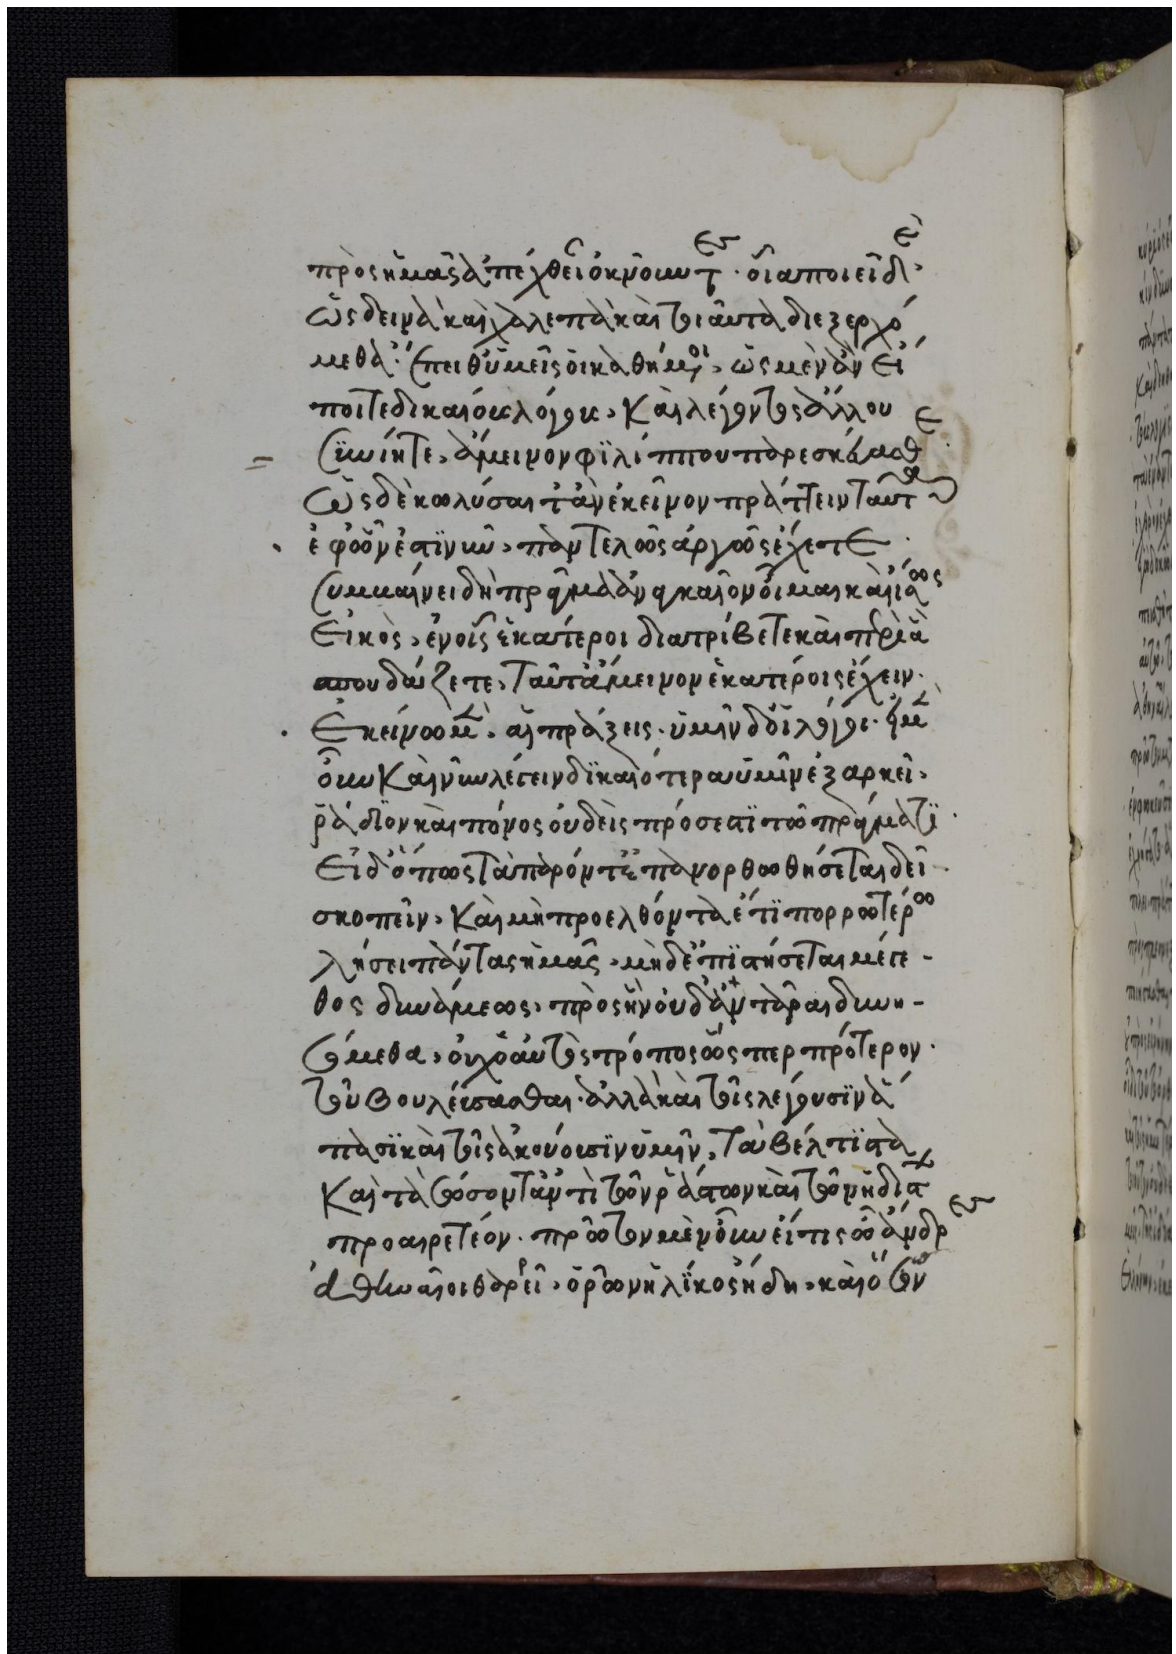 πρὸς ἡμᾶς ἀπέχθειαν ὀκνοῦντες· οἷα ποιεῖ δὲ
ὡς δεινὰ καὶ χαλεπὰ καὶ τοιαῦτα διεξερχό
μεθα· ἔπειθ' ὑμεῖς οἱ καθήμενοι, ὡς μὲν ἂν εἴ
ποιτε δικαίους λόγους, καὶ λέγοντος ἄλλου
συνείητε, ἄμεινον φιλίππου παρεσκεύασθε·
ὡς δὲ κωλύσαι τ' ἂν ἐκεῖνον πράττειν ταῦτα
ἐφ' ὧν ἐστὶν νῦν, παντελῶς ἀργῶς ἔχετε·
συμβαίνει δὴ πρᾶγμα ἀναγκαῖον οἶμαι καὶ ἴσως
εἰκὸς, ἐν οἷς ἑκάτεροι διατρίβετε καὶ περὶ ἃ
σπουδάζετε, ταῦτ' ἄμεινον ἑκατέροις ἔχειν·
ἐκείνω μὲν, αἱ πράξεις· ὑμῖν δ' οἱ λόγοι· εἰ μὲν
οὖν καὶ νῦν λέγειν δικαιότερα ὑμῖν ἐξαρκεῖ,
ῥάδιον καὶ πόνος οὐδεὶς πρόσεστι τῶ πράγματι·
εἰ δ' ὅπως τὰ παρόντ' ἐπανορθωθήσεται δεῖ
σκοπεῖν, καὶ μὴ προελθόντα ἔτι πορρωτέρω
λήσει πάντας ἡμᾶς, μηδ' ἐπιστήσεται μέγε-
θος δυνάμεως, πρὸς ἣν οὐδ' ἀντᾶραι δυνη-
σόμεθα, οὐχ ὁ αὐτὸς τρόπος ὥσπερ πρότερον·
τοῦ βουλεύσασθαι· ἀλλὰ καὶ τοῖς λέγουσιν ἅ
πασι καὶ τοῖς ἀκούουσιν ὑμῖν, τὰ βέλτιστα
καὶ τὰ σώσοντ' ἀντὶ τῶν ῥάστων καὶ τῶν ἡδίστων
προαιρετέον· πρῶτον μὲν οὖν εἴ τις ὦ ἄνδρες
ἀθηναῖοι θαρρεῖ, ὁρῶν ἡλίκος ἤδη, καὶ ὅσων